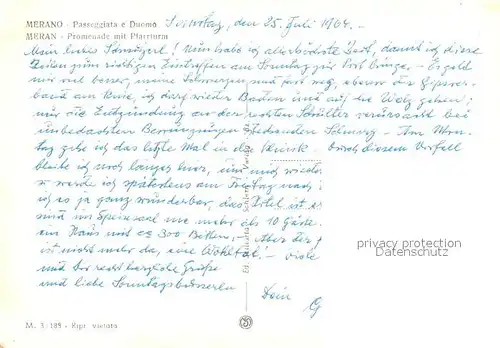 MERANO - Passeggiata e Duomo
MERAN - Promenade mit Pfarrturm
Samstag, den 25. Juli 1964.
Mein liebes ! Nun habe ich allerhöchste Zeit, damit ich diese
Zeilen zum richtigen Eintreffen am Sonntag zur Post bringe. - Es geht
mir viel besser, meine Schmerzen sind fast weg, ebenso der Gipsver-
band am Knie, ich darf wieder Baden und auf die Weg gehen;
nur die Entzündung an der rechten Schulter verursacht bei
unbedachten Bewegungen stechenden Schmerz. - Am Mon-
tag gehe ich das letzte Mal in die Klinik. Durch diesen Vorfall
bleibe ich noch länger hier, und
werde ich spätestens am Freitag nach
ich es ja ganz wunderbar, das Hotel ist
sind im Speisesaal nie mehr als 10 Gäste.
ein Haus mit ca 300 Betten, - Aber der
ist nicht mehr da, eine Wohltat! - Viele
und Grüße
und liebe Sonntagsbusserln
Dein G
privacy protection
Datenschutz
M. 3/185 - Ripr. vietata